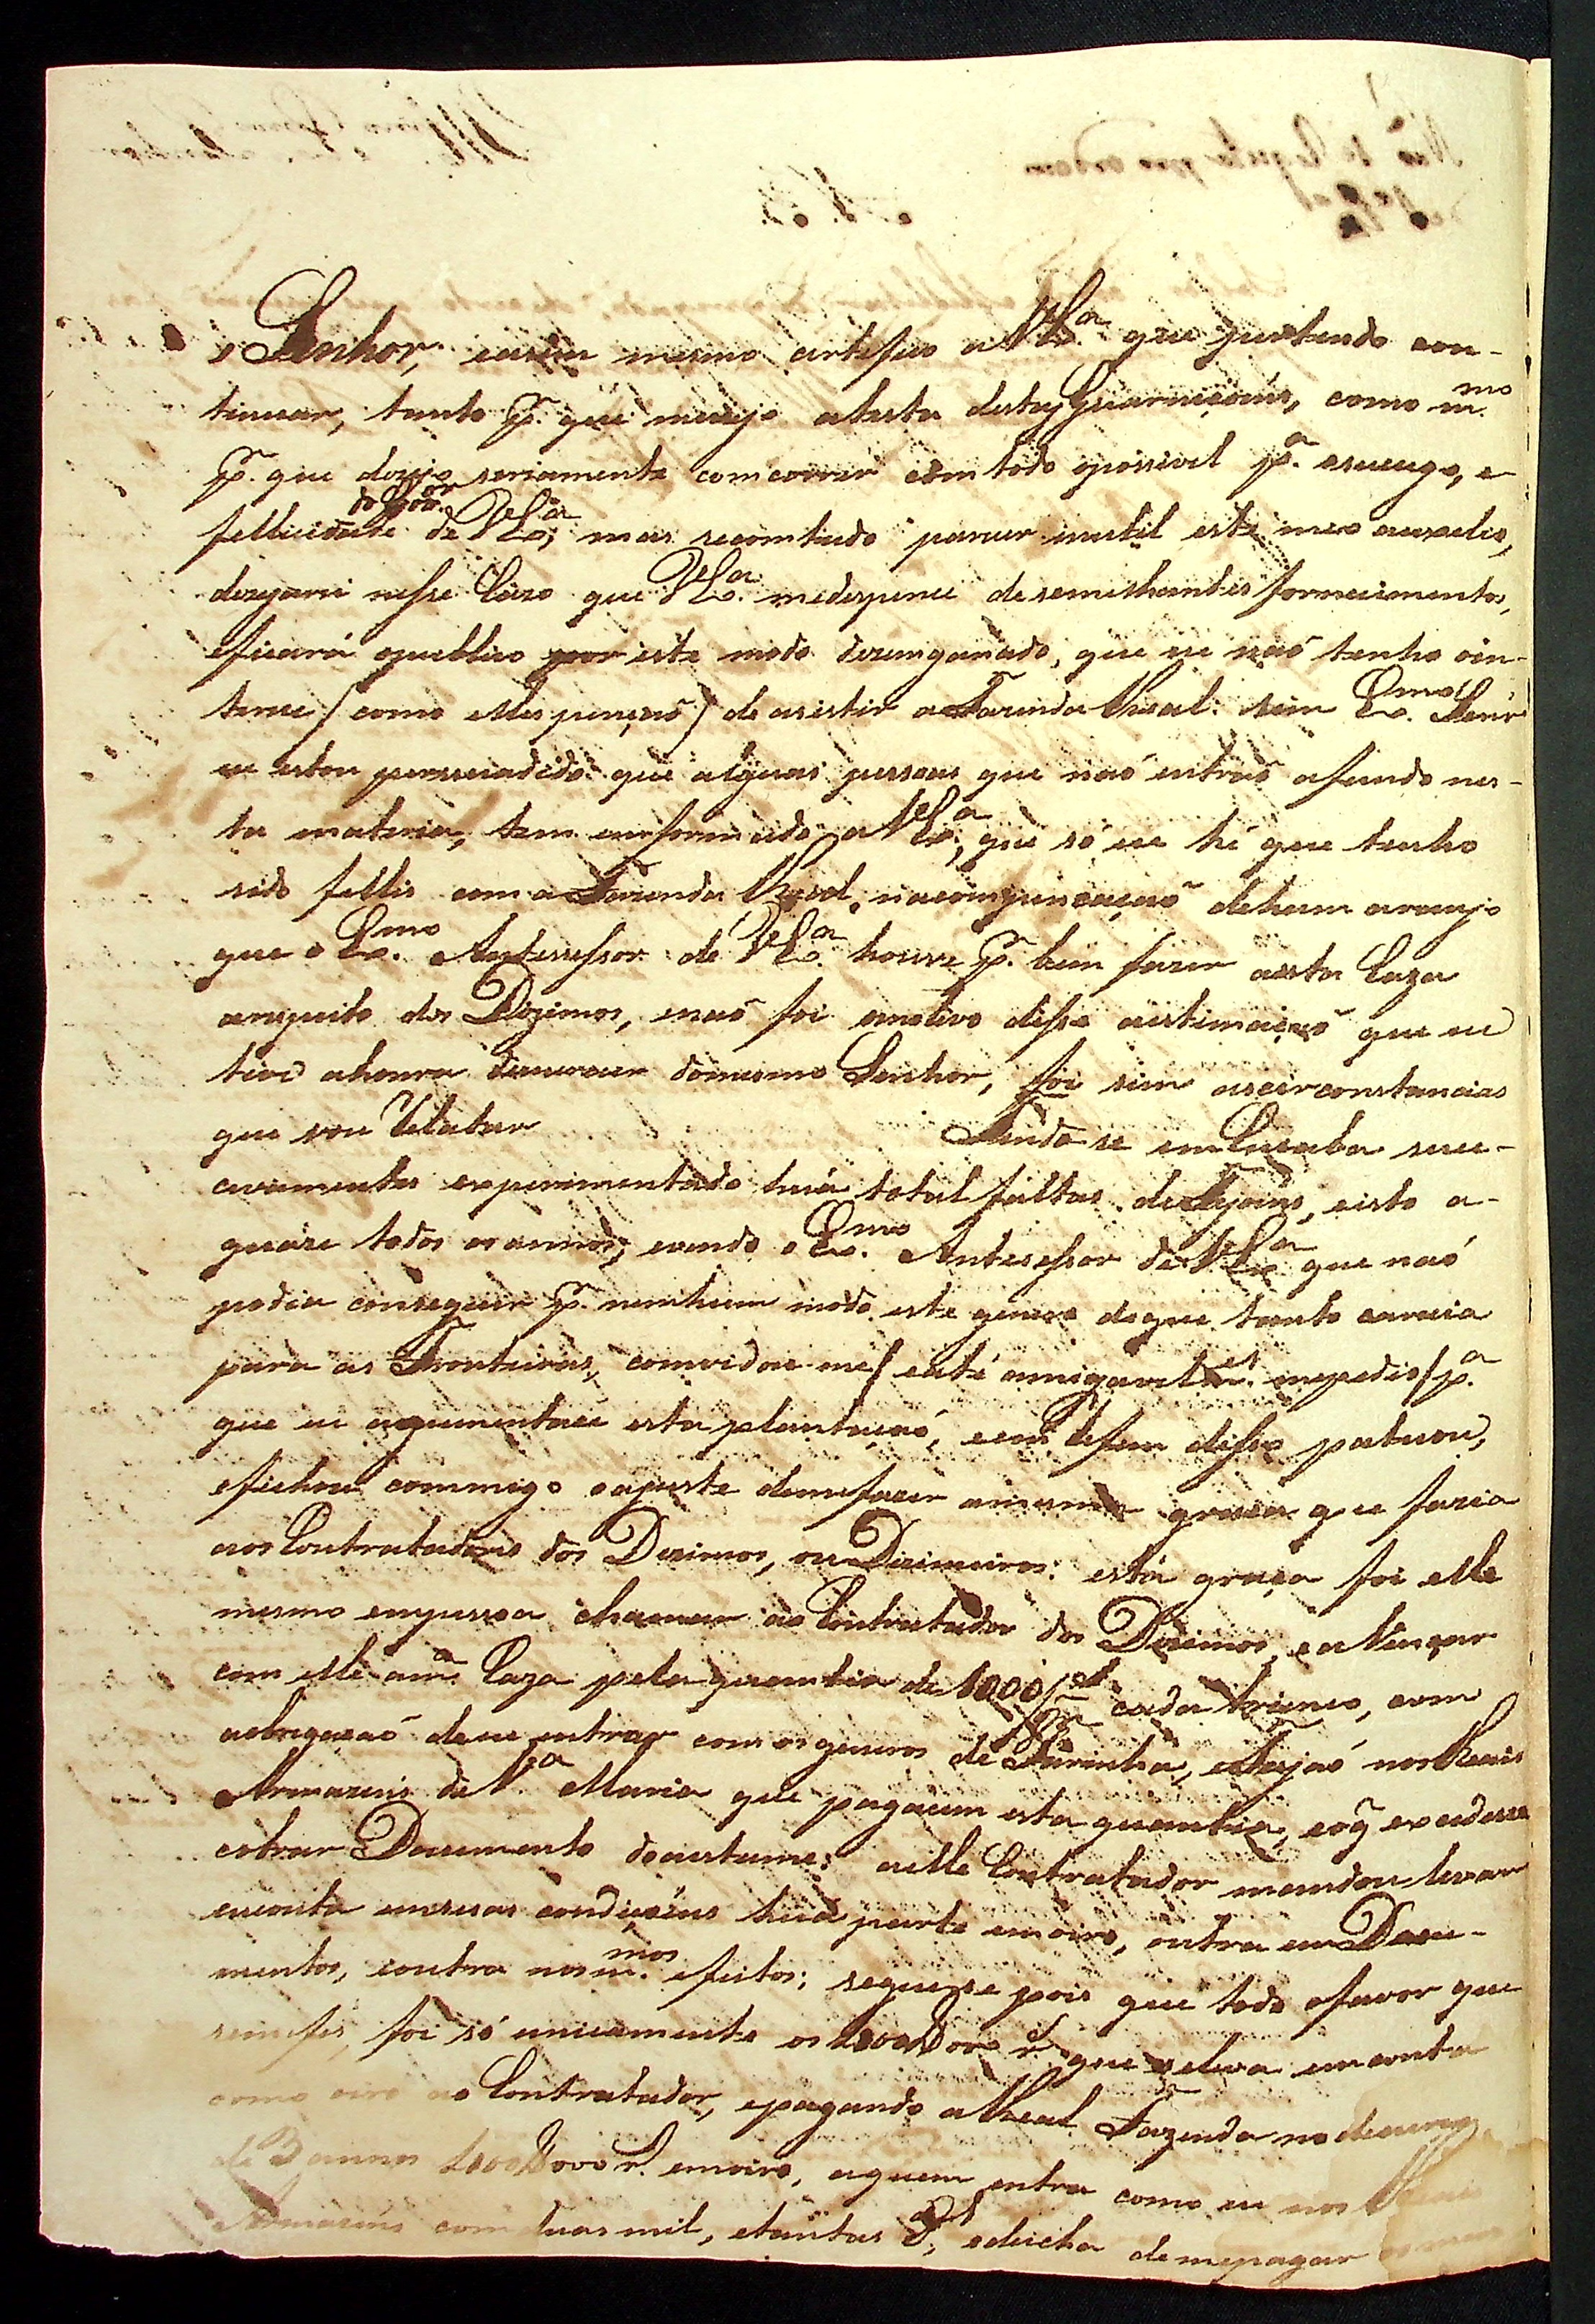 Senhor, easim mesmo certefico a VEx.ª que pertendo con-
tinuar, tanto p.ʳ que manejo atesta destas Guarniçoins, como m.mo
p.ʳ que dezejo seriamente comcorrer com todo opossivel p.ª osucego, e
do Gov.or
fellicidade de VEx.ª; mas secomtudo parecer inutil este meo auxelio,
dezejarei nesse Cazo que VEx.ª medespence desemilhantes fornecimentos,
eficará opubblico por este modo dezenganado, que eu naõ tenho oin-
terece (como elles pençaõ) de asistir a Fazenda Real: sim Ex.mo Senr
eu estou perssuadido que alguas pessoas que naõ entraõ afundo nes-
ta materia, tem emformado a VEx.ª, que só eu hé que tenho
sido fellis com a Fazenda Real, nacompençaçaõ dehum aranjo
que o Ex.mo Antessessor de VEx.ª houve p.ʳ bem fazer aesta Caza
arespeito dos Dizimos, enaõ foi omotivo disso aestimaçaõ que eu
tive ahonra demerecer domesmo Senhor, foi sim ascirconstancias
que vou Relatar Tendo se em Cuiaba suce-
civamente experimentado huá total faltas de Feijoins, eisto a-
quaze todos osannos; evendo o Ex.mo Antesessor de VEx.ª que naõ
podia conseguir p.ʳ nenhum modo este genero deque tanto carecia
para as Fronteiras, comvidou me (eaté amigavelm.te mepedio) p.ª
que eu aogumentace esta plantaçaõ, eem disso patuou,
efichou commigo oajuste demefazer amesma graça que fazia
aos Contratadores dos Dizimos, ou Dizimeiros: está graça foi elle
mesmo empessoa chamar ao Contratador dos Dizimos, e aVençar
com elle am.ª Caza pela quantia de 1000/8.as cada trieneo, com
aobrigaçaõ deeu entrar com os generos de Farinha, eFeijaõ nos Reais
Armazeins de V.ª Maria que pagacem esta quantia, eoq̃ excedesse
cobrar Documento docustume; aelle Contratador mandou levar
emconta emsuas condiçoins huá parte emoiro, outra em Docu-
mentos, eoutra nosm.mos efeitos; seguesse pois que todo ofavor que
semefes, foi só unicamente os que seleva emconta
como oiro ao Contratador, epagando aReal Fazenda no decurso
de 3 annos emoiro, aquem entra como eu nos Reais
Armazeins com duas mil, etantas 8.as, edeicha demepagar